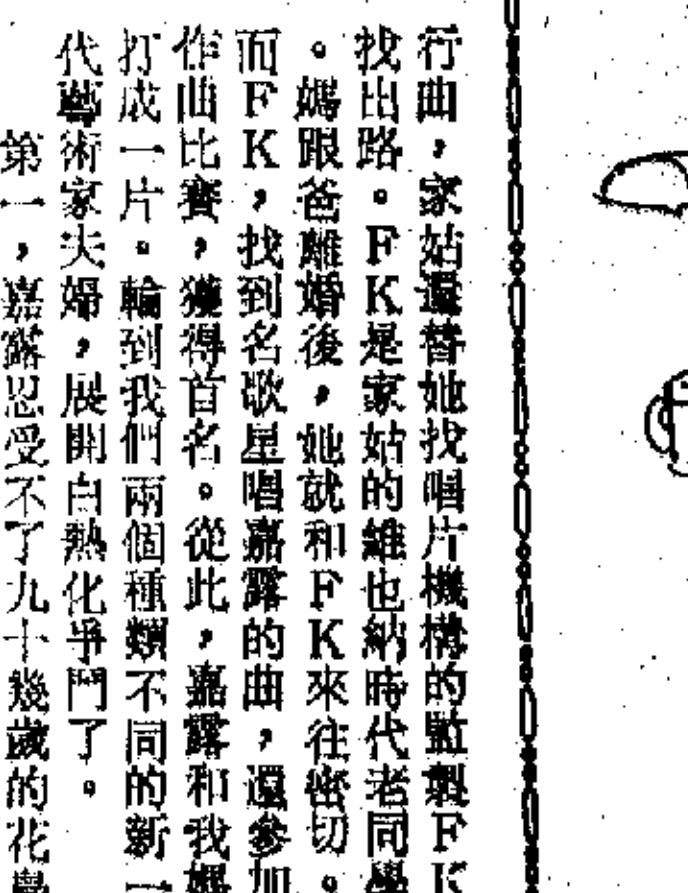 行曲，家姑還替她找唱片機構的監製FK
找出路。FK是家姑的維也納時代老同學
。媽跟爸離婚後，她就和FK來往密切。
而FK，找到名歌星唱嘉露的曲，還參加
作曲比賽，獲得首名。從此，嘉露和我媽
打成一片。輪到我們兩個種類不同的新一
代藝術家夫婦，展開白熱化爭鬥了。
第一，嘉露忍受不了九十幾歲的花